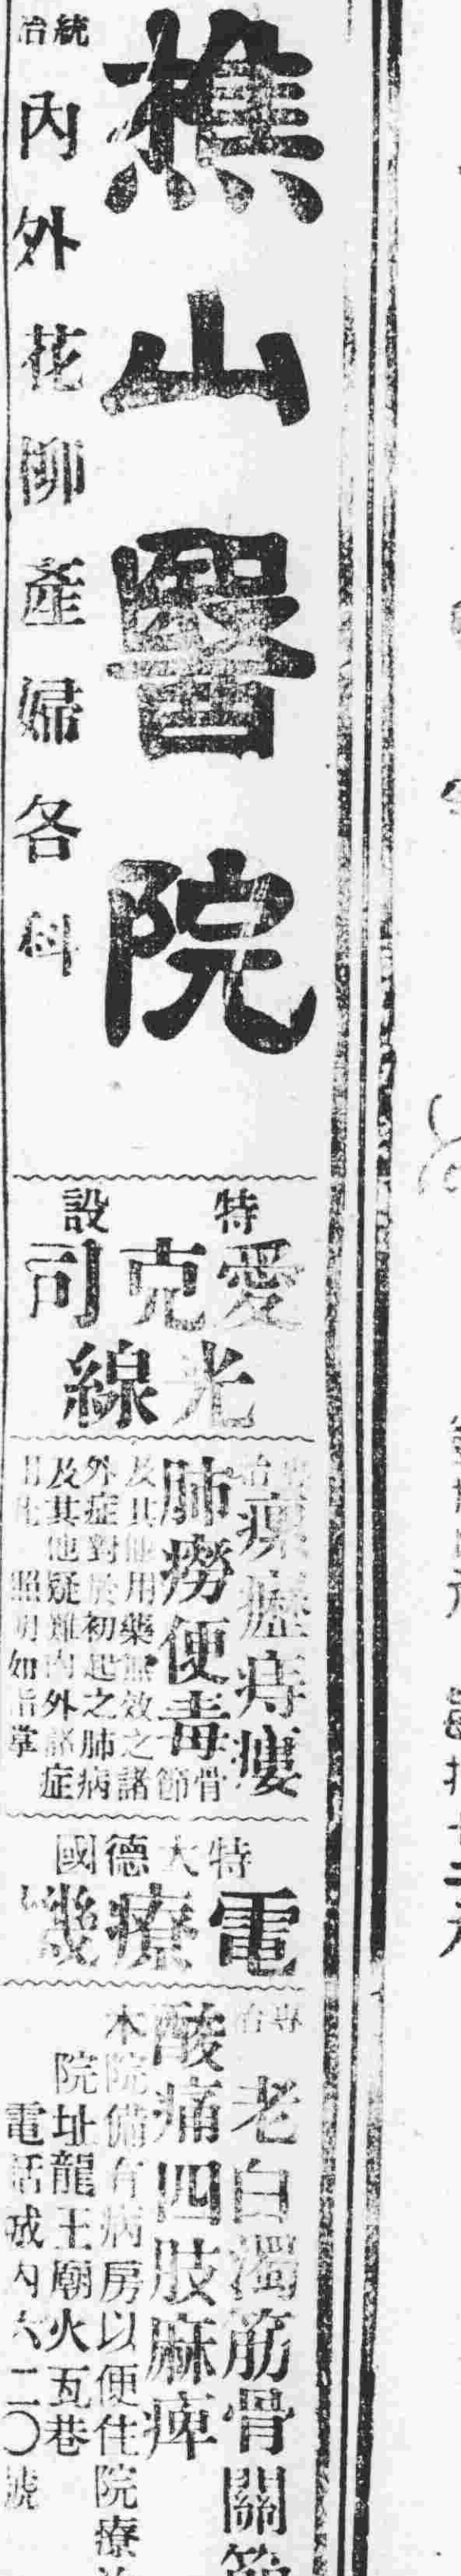 樵山醫院
統治
內外花柳產婦各科
特設
愛克司
光線
瘰癧痔瘻
肺癆便毒骨節
及其他用藥無效之諸
外症對於初起之肺病
及其他疑難內外諸症
照明如指掌
特大德國
電療機
專治
老白濁筋骨關節
酸痛四肢麻痺
本院備有病房以便住院療
院址龍王廟火瓦巷
電話城內六二〇號